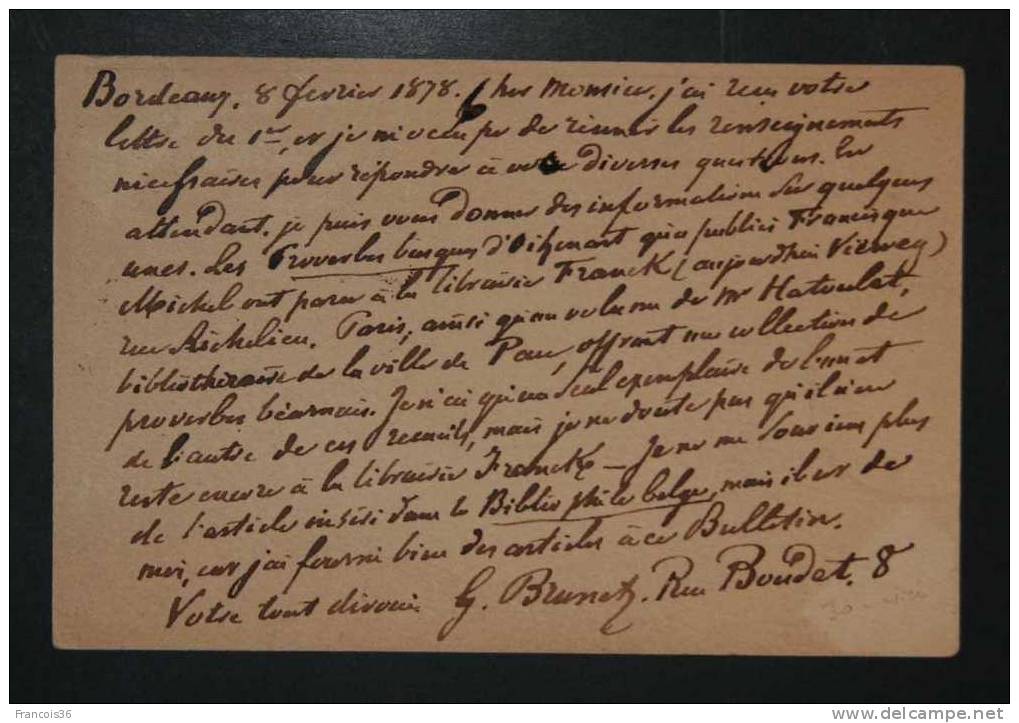 Bordeaux, 8 fevrier 1878. Cher Monsieur, j'ai reçu votre
lettre du 1er, et je m'occupe de réunir les renseignements
nécessaires pour répondre à vos diverses questions. En
attendant, je puis vous donner des informations sur quelques
unes. Les Proverbes basques d'Oihenart qu'a publiés Francisque
Michel ont paru à la librairie Franck (aujourd'hui Vieweg)
rue Richelieu, Paris, ainsi qu'un volume de Mr Hatoulet,
bibliothécaire de la ville de Pau, offrant une collection de
proverbes béarnais. Je n'ai qu'un seul exemplaire de l'un et
de l'autre de ces recueils, mais je ne doute pas qu'il n'en
reste encore à la librairie Franck — Je ne me souviens plus
de l'article inséré dans le Bibliophile belge, mais il est de
moi, car j'ai fourni bien des articles à ce Bulletin.
Votre tout dévoué G. Brunet. Rue Boudet. 8
Francois36
www.delcampe.net